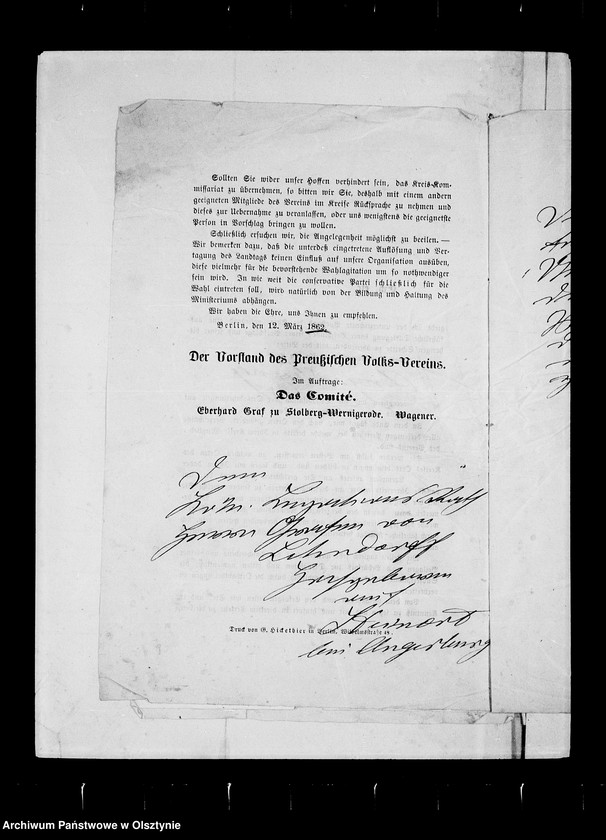 Sollten Sie wider unser Hoffen verhindert sein, das Kreis-Kom-
missariat zu übernehmen, so bitten wir Sie, deshalb mit einem andern
geeigneten Mitgliede des Vereins im Kreise Rücksprache zu nehmen und
dieses zur Uebernahme zu veranlassen, oder uns wenigstens die geeignetste
Person in Vorschlag bringen zu wollen.
Schließlich ersuchen wir, die Angelegenheit möglichst zu beeilen. —
Wir bemerken dazu, daß die unterdeß eingetretene Auflösung und Ver-
tagung des Landtags keinen Einfluß auf unsere Organisation ausüben,
diese vielmehr für die bevorstehende Wahlagitation um so nothwendiger
sein wird. In wie weit die conservative Partei schließlich für die
Wahl eintreten soll, wird natürlich von der Bildung und Haltung des
Ministeriums abhängen.
Wir haben die Ehre, uns Ihnen zu empfehlen.
Berlin, den 12. März 1862.
Der Vorstand des Preußischen Volks-Vereins.
Im Auftrage:
Das Comité.
Eberhard Graf zu Stolberg-Wernigerode. Wagener.
Dem
Herrn Grafen von
Lehndorff
auf
Steinort
bei Angerburg
Druck von G. Hickethier in Berlin, Wilhelmstraße 48.
Archiwum Państwowe w Olsztynie